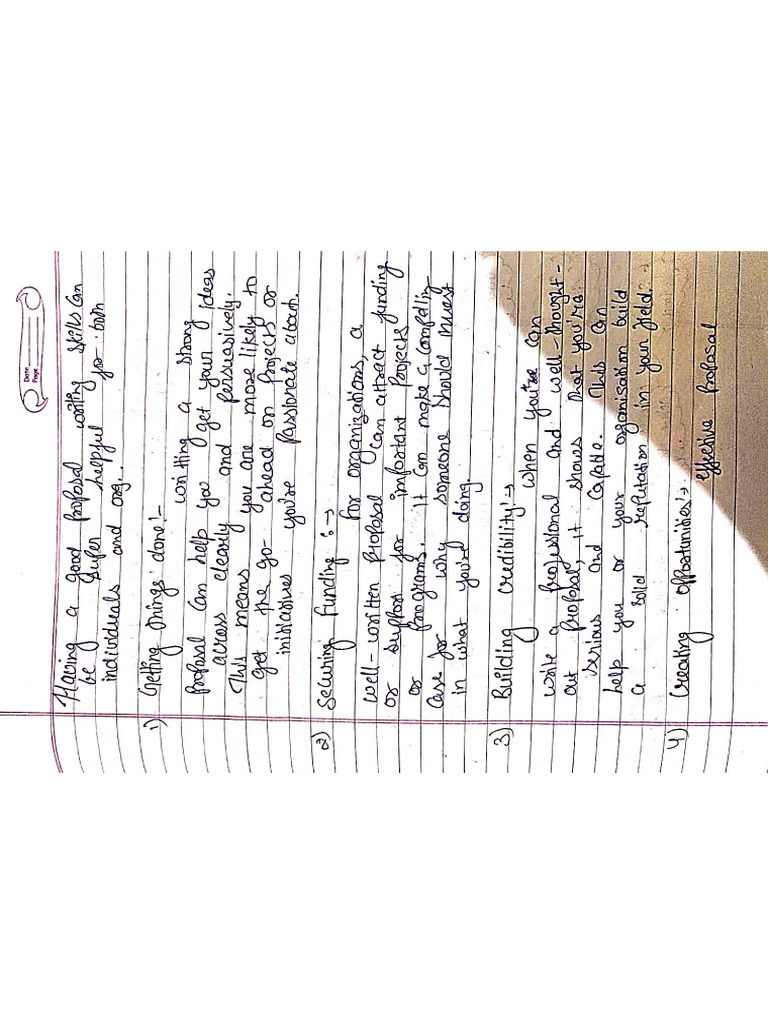 Date
Page
Having a good Proposal writing skills can
be super helpful for both
individuals and org..
1) Getting things done!-
writting a strong
Proposal can help you get your ideas
across clearly and persuasively.
This means you are more likely to
get the go-ahead on Projects or
initiatives you're Passionate about.
2) Securing Funding :→
For organizations, a
well-written Proposal can attract funding
or support for important Projects
or Programs. It can make a compelling
case for why someone should invest
in what you're doing.
3) Building Credibility:→
when you're can
write a professional and well-thought-
out Proposal, it shows that you're
serious and capable. This can
help you or your organisation build
a solid reputation in your field.
4) Creating opportunities:→
effective Proposal